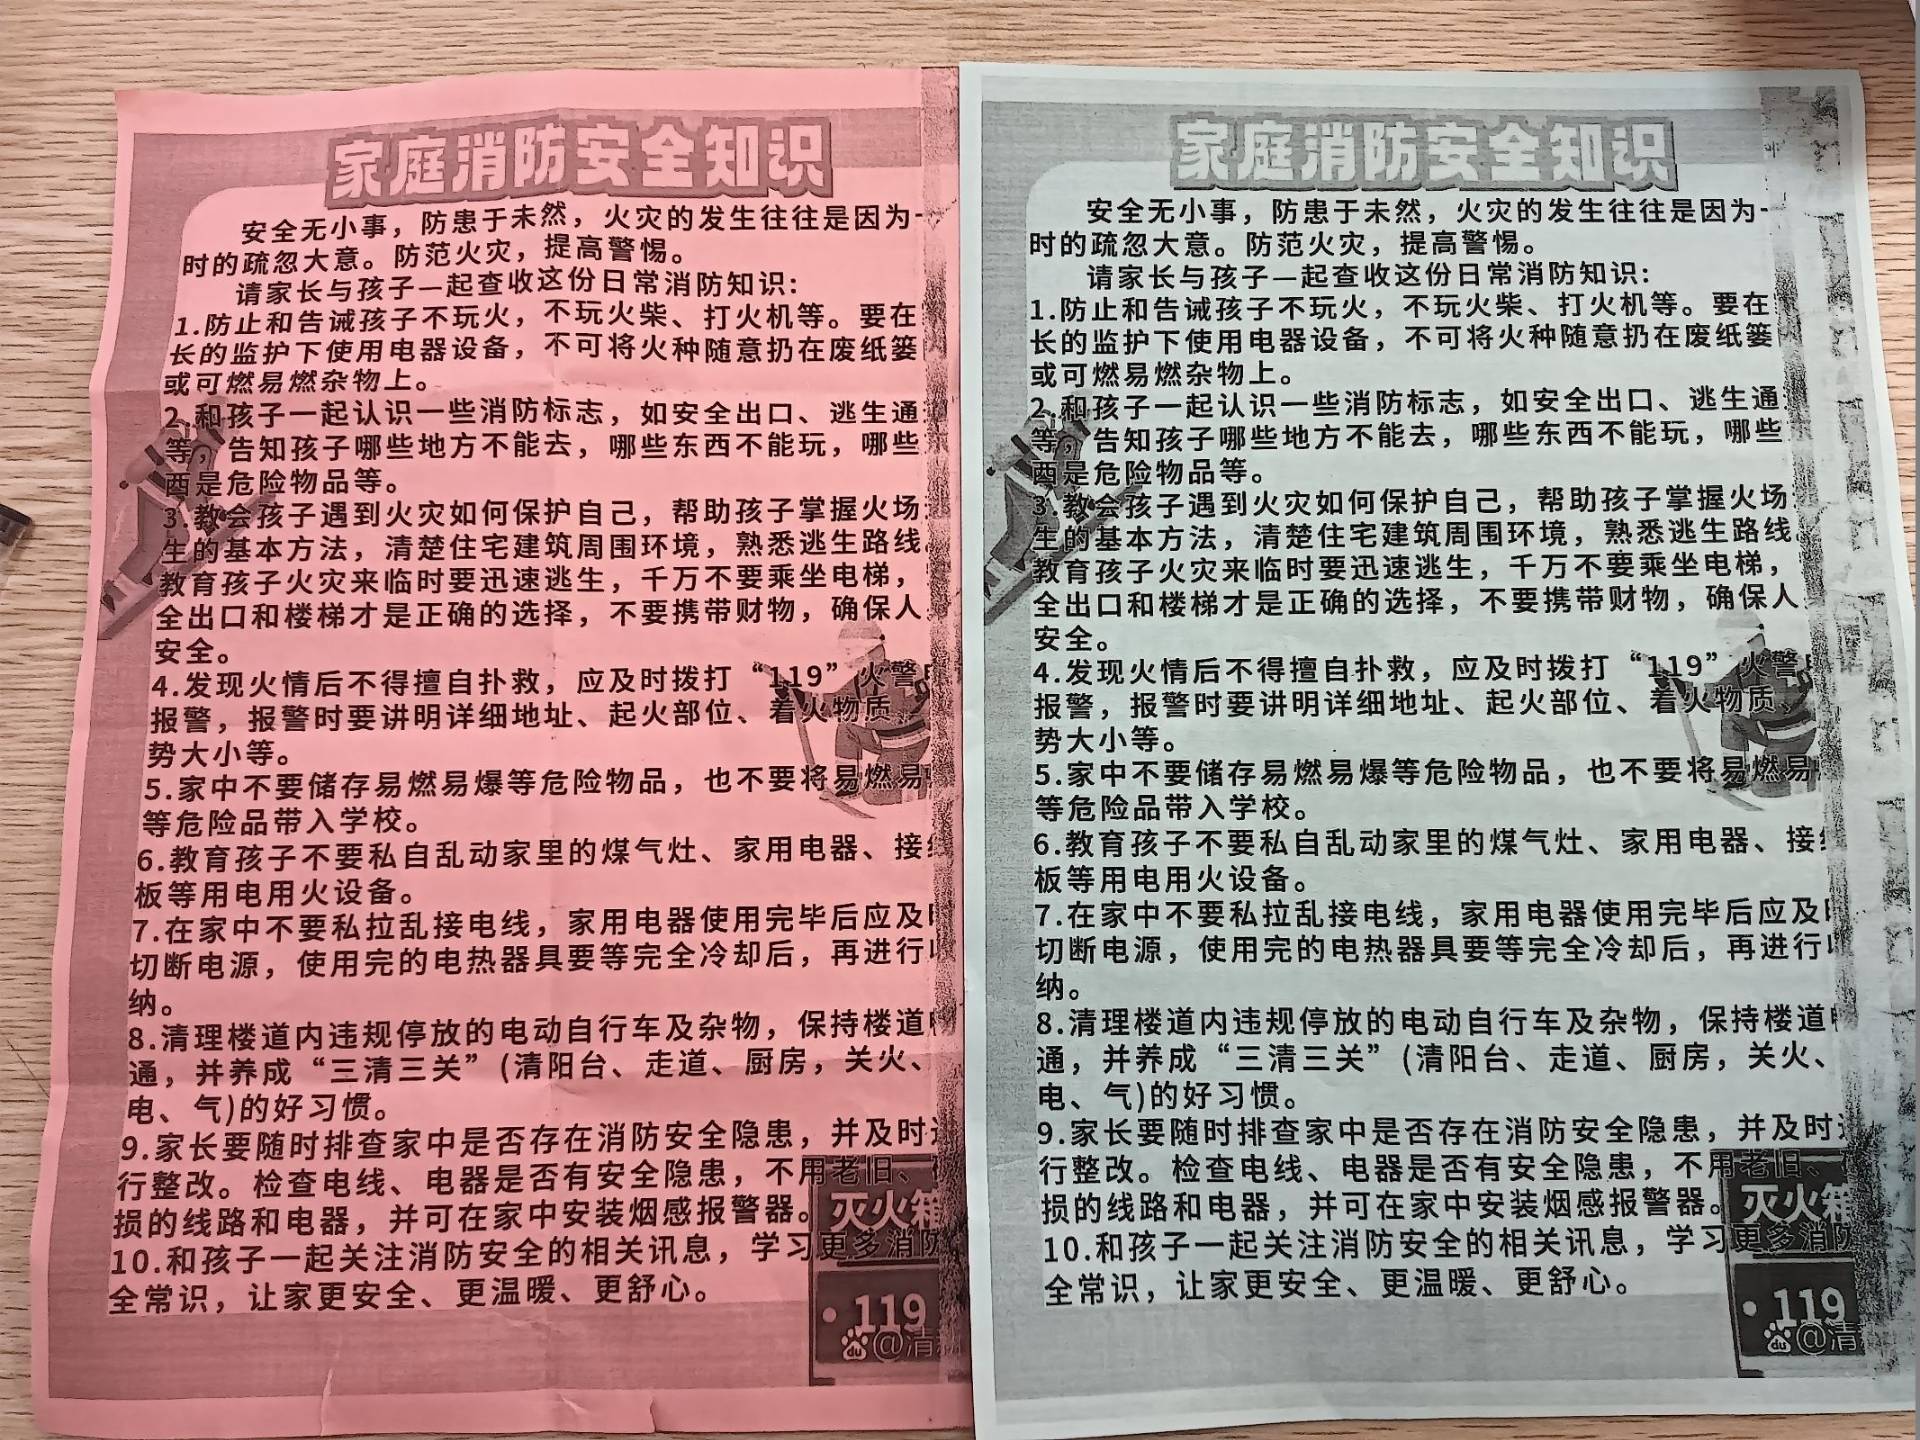 家庭消防安全知识
安全无小事，防患于未然，火灾的发生往往是因为一
时的疏忽大意。防范火灾，提高警惕。
请家长与孩子一起查收这份日常消防知识：
1.防止和告诫孩子不玩火，不玩火柴、打火机等。要在
长的监护下使用电器设备，不可将火种随意扔在废纸篓
或可燃易燃杂物上。
2.和孩子一起认识一些消防标志，如安全出口、逃生通
等，告知孩子哪些地方不能去，哪些东西不能玩，哪些
西是危险物品等。
3.教会孩子遇到火灾如何保护自己，帮助孩子掌握火场
生的基本方法，清楚住宅建筑周围环境，熟悉逃生路线。
教育孩子火灾来临时要迅速逃生，千万不要乘坐电梯，
全出口和楼梯才是正确的选择，不要携带财物，确保人
安全。
4.发现火情后不得擅自扑救，应及时拨打“119”火警
报警，报警时要讲明详细地址、起火部位、着火物质、
势大小等。
5.家中不要储存易燃易爆等危险物品，也不要将易燃易
等危险品带入学校。
6.教育孩子不要私自乱动家里的煤气灶、家用电器、接
板等用电用火设备。
7.在家中不要私拉乱接电线，家用电器使用完毕后应及
切断电源，使用完的电热器具要等完全冷却后，再进行
纳。
8.清理楼道内违规停放的电动自行车及杂物，保持楼道
通，并养成“三清三关”(清阳台、走道、厨房，关火、
电、气)的好习惯。
9.家长要随时排查家中是否存在消防安全隐患，并及时
行整改。检查电线、电器是否有安全隐患，不用老旧、
损的线路和电器，并可在家中安装烟感报警器。
10.和孩子一起关注消防安全的相关讯息，学习更多消防
全常识，让家更安全、更温暖、更舒心。
灭火箱
119
du @清
家庭消防安全知识
安全无小事，防患于未然，火灾的发生往往是因为一
时的疏忽大意。防范火灾，提高警惕。
请家长与孩子一起查收这份日常消防知识：
1.防止和告诫孩子不玩火，不玩火柴、打火机等。要在
长的监护下使用电器设备，不可将火种随意扔在废纸篓
或可燃易燃杂物上。
2.和孩子一起认识一些消防标志，如安全出口、逃生通
等，告知孩子哪些地方不能去，哪些东西不能玩，哪些
西是危险物品等。
3.教会孩子遇到火灾如何保护自己，帮助孩子掌握火场
生的基本方法，清楚住宅建筑周围环境，熟悉逃生路线。
教育孩子火灾来临时要迅速逃生，千万不要乘坐电梯，
全出口和楼梯才是正确的选择，不要携带财物，确保人
安全。
4.发现火情后不得擅自扑救，应及时拨打“119”火警
报警，报警时要讲明详细地址、起火部位、着火物质、
势大小等。
5.家中不要储存易燃易爆等危险物品，也不要将易燃易
等危险品带入学校。
6.教育孩子不要私自乱动家里的煤气灶、家用电器、接
板等用电用火设备。
7.在家中不要私拉乱接电线，家用电器使用完毕后应及
切断电源，使用完的电热器具要等完全冷却后，再进行
纳。
8.清理楼道内违规停放的电动自行车及杂物，保持楼道
通，并养成“三清三关”(清阳台、走道、厨房，关火、
电、气)的好习惯。
9.家长要随时排查家中是否存在消防安全隐患，并及时
行整改。检查电线、电器是否有安全隐患，不用老旧、
损的线路和电器，并可在家中安装烟感报警器。
10.和孩子一起关注消防安全的相关讯息，学习更多消防
全常识，让家更安全、更温暖、更舒心。
灭火箱
119
du @清